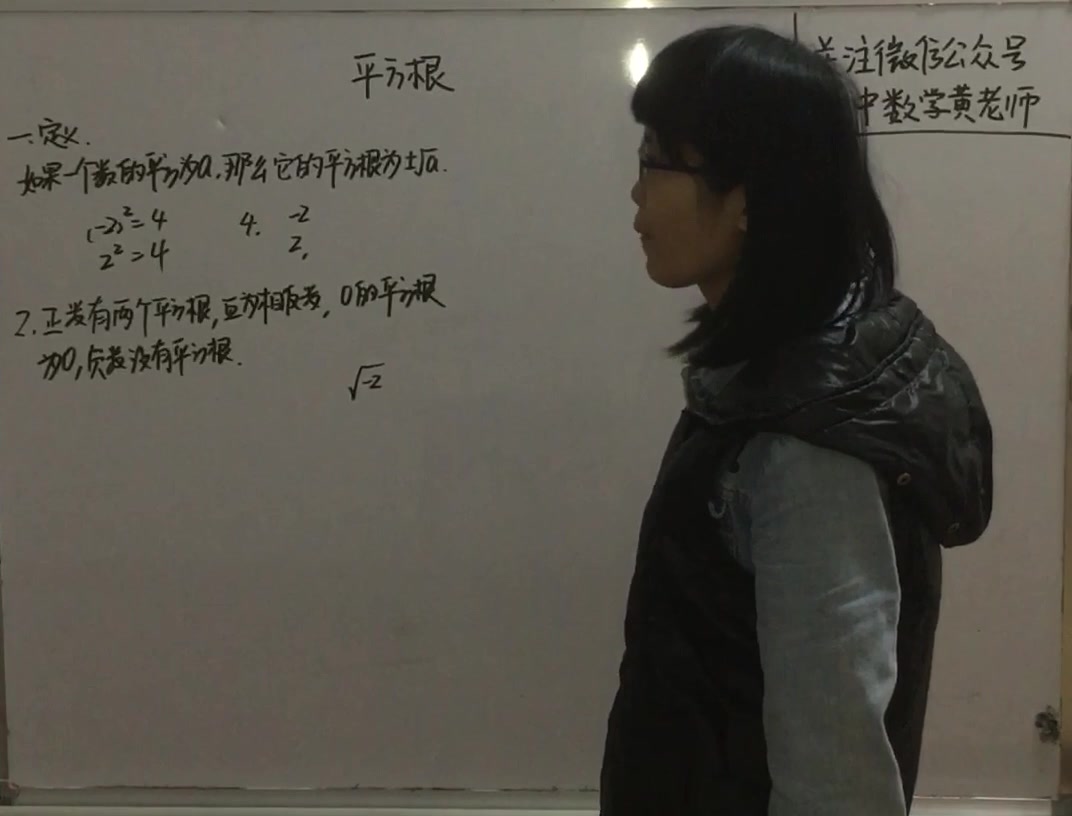 平方根
注微信公众号
中数学黄老师
一、定义.
如果一个数的平方为a,那么它的平方根为±√a.
(-2)²=4 4. -2
2²=4 2,
2.正数有两个平方根,互为相反数,0的平方根
为0,负数没有平方根.
√-2